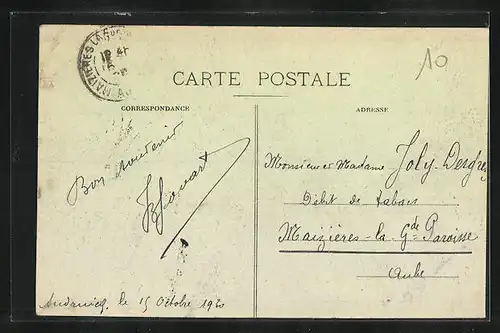 MAIZIÈRES LA GRDE
10
CARTE POSTALE
CORRESPONDANCE
ADRESSE
Bon souvenir
Monsieur Madame Joly-Desgrey
Débit de tabacs
Maizières-la Gde Paroisse
Aube
le 15 Octobre 1920